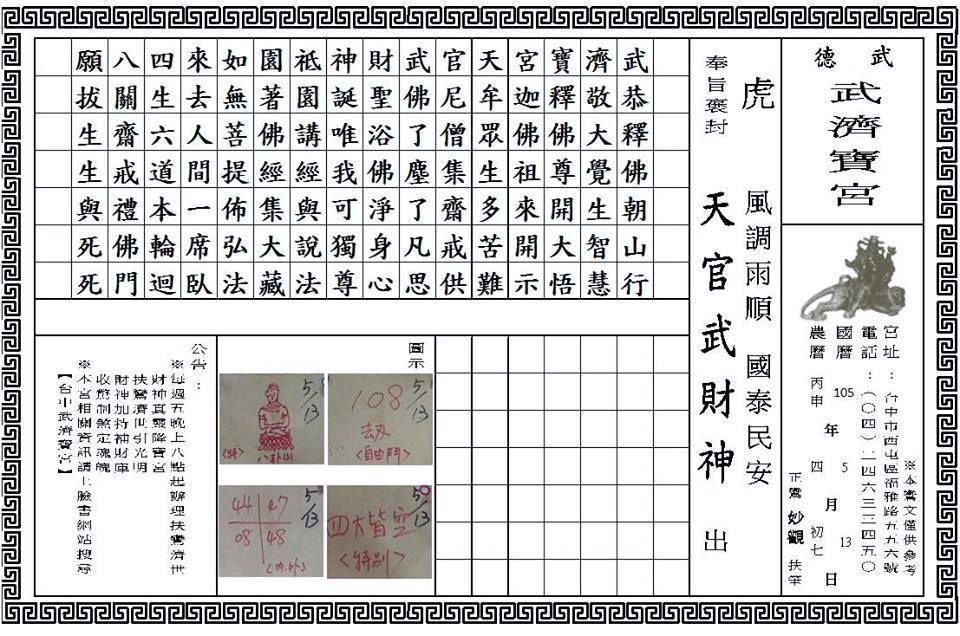 武德
武濟寶宮
宮址：台中市西屯區福雅路
電話：(〇四)
國曆105年5月13日
農曆丙申年四月初七日
※本鸞文僅供參考
正鸞妙觀扶筆
虎
風調雨順　國泰民安
奉旨褒封
天官武財神　出
武恭釋佛朝山行
濟敬大覺生智慧
寶釋佛尊開大悟
宮迦佛祖來開示
天牟眾生多苦難
官尼僧集齋戒供
武佛了塵了凡思
財聖浴佛淨身心
神誕唯我可獨尊
祇園講經與說法
園著佛經集大藏
如無菩提佈弘法
來去人間一席臥
四生六道本輪迴
八關齋戒禮佛門
願拔生生與死死
圖示
5/13
108
劫
〈自由鬥〉
5/13
八卦山
5/13
四大皆空
〈特別〉
5/13
44 47
08 48
公告：
※每週五晚上八點起辦理扶鸞濟世
財神真靈降寶宮
扶鸞濟世引光明
財神加持補財庫
收驚制煞定魂魄
※本宮相關資訊請上臉書網站搜尋
【台中武濟寶宮】